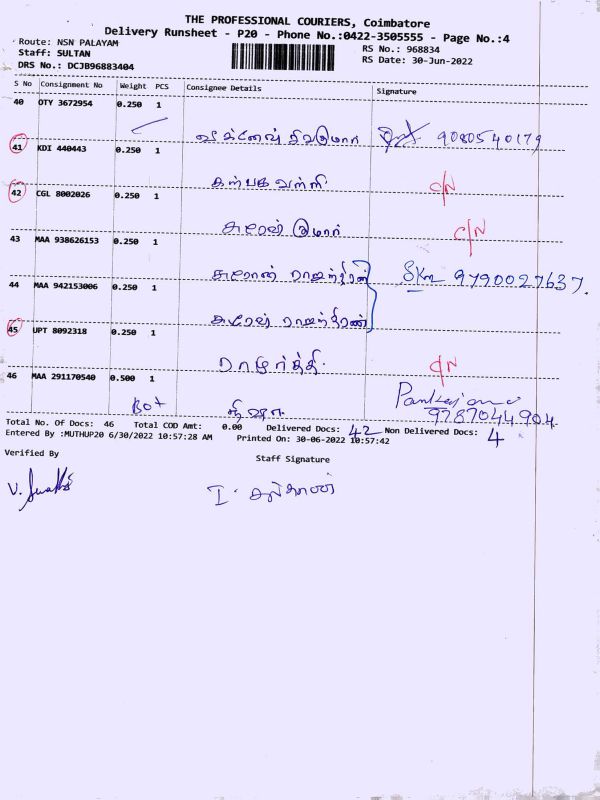 THE PROFESSIONAL COURIERS, Coimbatore
Delivery Runsheet - P20 - Phone No.:0422-3505555 - Page No.:4
Route: NSN PALAYAM
RS No.: 968834
Staff: SULTAN
RS Date: 30-Jun-2022
DRS No.: DCJB96883404
S No Consignment No Weight PCS Consignee Details Signature
40 OTY 3672954 0.250 1
9080540179
41 KDI 440443 0.250 1
கற்பகவள்ளி. C/N
42 CGL 8002026 0.250 1
சுரேஷ் குமார் C/N
43 MAA 938626153 0.250 1
9790027637.
44 MAA 942153006 0.250 1
45 UPT 8092318 0.250 1
C/N
46 MAA 291170540 0.500 1
Box 9787044904
Total No. Of Docs: 46 Total COD Amt: 0.00 Delivered Docs: 42 Non Delivered Docs: 4
Entered By :MUTHUP20 6/30/2022 10:57:28 AM Printed On: 30-06-2022 10:57:42
Verified By
Staff Signature
I. சுல்தான்